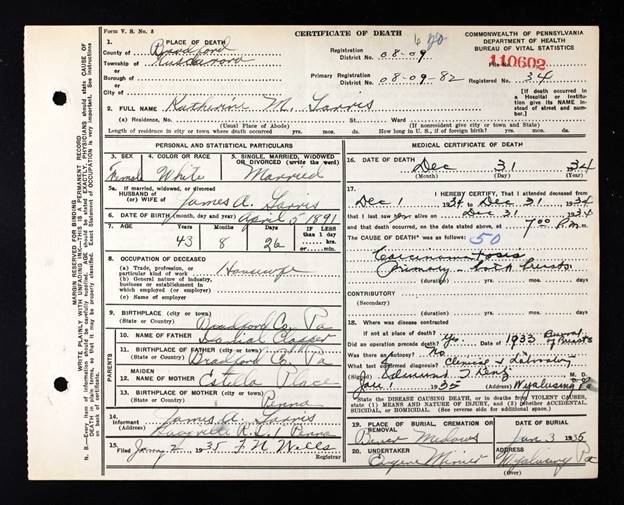 Form V. S. No. 5
CERTIFICATE OF DEATH
COMMONWEALTH OF PENNSYLVANIA
DEPARTMENT OF HEALTH
BUREAU OF VITAL STATISTICS
1. PLACE OF DEATH
County of Bradford
Township of
or
Borough of
or
City of
Registration District No. 08-09
Primary Registration District No. 08-09-82
110602
Registered No. 34
[If death occurred in a Hospital or Institution give its NAME instead of street and number.]
2. FULL NAME Katherine M.
(a) Residence, No. St.
(Usual Place of Abode) (If nonresident give city or town and State)
Length of residence in city or town where death occurred yrs. mos. ds. How long in U. S., if of foreign birth? yrs. mos. ds.
PERSONAL AND STATISTICAL PARTICULARS
3. SEX Female
4. COLOR OR RACE White
5. SINGLE, MARRIED, WIDOWED OR DIVORCED (write the word) Married
5a. If married, widowed, or divorced
HUSBAND of
(or) WIFE of James A.
6. DATE OF BIRTH (month, day, and year) April 5 1891
7. AGE Years 43 Months 8 Days 26 If LESS than 1 day, hrs. or min.
8. OCCUPATION OF DECEASED
(a) Trade, profession, or particular kind of work Housewife
(b) General nature of industry, business or establishment in which employed (or employer)
(c) Name of employer
9. BIRTHPLACE (city or town) (State or Country) Bradford Co., Pa
PARENTS
10. NAME OF FATHER Clapper
11. BIRTHPLACE OF FATHER (city or town) (State or country) Bradford Co. Pa
12. MAIDEN NAME OF MOTHER Estella Place
13. BIRTHPLACE OF MOTHER (city or town) (State or country) Penna
14. Informant James A.
(Address) Penna
15. Filed Jan 2 1935 F. M. Wells Registrar
MEDICAL CERTIFICATE OF DEATH
16. DATE OF DEATH Dec 31 1934
(Month) (Day) (Year)
17. I HEREBY CERTIFY, That I attended deceased from
Dec 1 1934 to Dec 31 1934
that I last saw her alive on Dec 31 1934
and that death occurred, on the date stated above, at 7:00 P.m.
The CAUSE OF DEATH* was as follows: 50
Carcinomatosis
Primary both breasts
(duration) yrs. mos. ds.
CONTRIBUTORY
(Secondary)
(duration) yrs. mos. ds.
18. Where was disease contracted
if not at place of death?
Did an operation precede death? Yes 1933 of Breasts
Was there an autopsy? No
What test confirmed diagnosis? Clinical & Laboratory
(Signed) M. D.
Jan 1 1935 (Address) Wyalusing Pa
*State the DISEASE CAUSING DEATH, or in deaths from VIOLENT CAUSES, state (1) MEANS AND NATURE OF INJURY, and (2) whether ACCIDENTAL, SUICIDAL, or HOMICIDAL. (See reverse side)
19. PLACE OF BURIAL CREMATION OR REMOVAL Meadows
DATE OF BURIAL Jan 3 1935
20. UNDERTAKER Eugene
ADDRESS Wyalusing Pa
(Over)
MARGIN RESERVED FOR BINDING
WRITE PLAINLY WITH UNFADING INK—THIS IS A PERMANENT RECORD